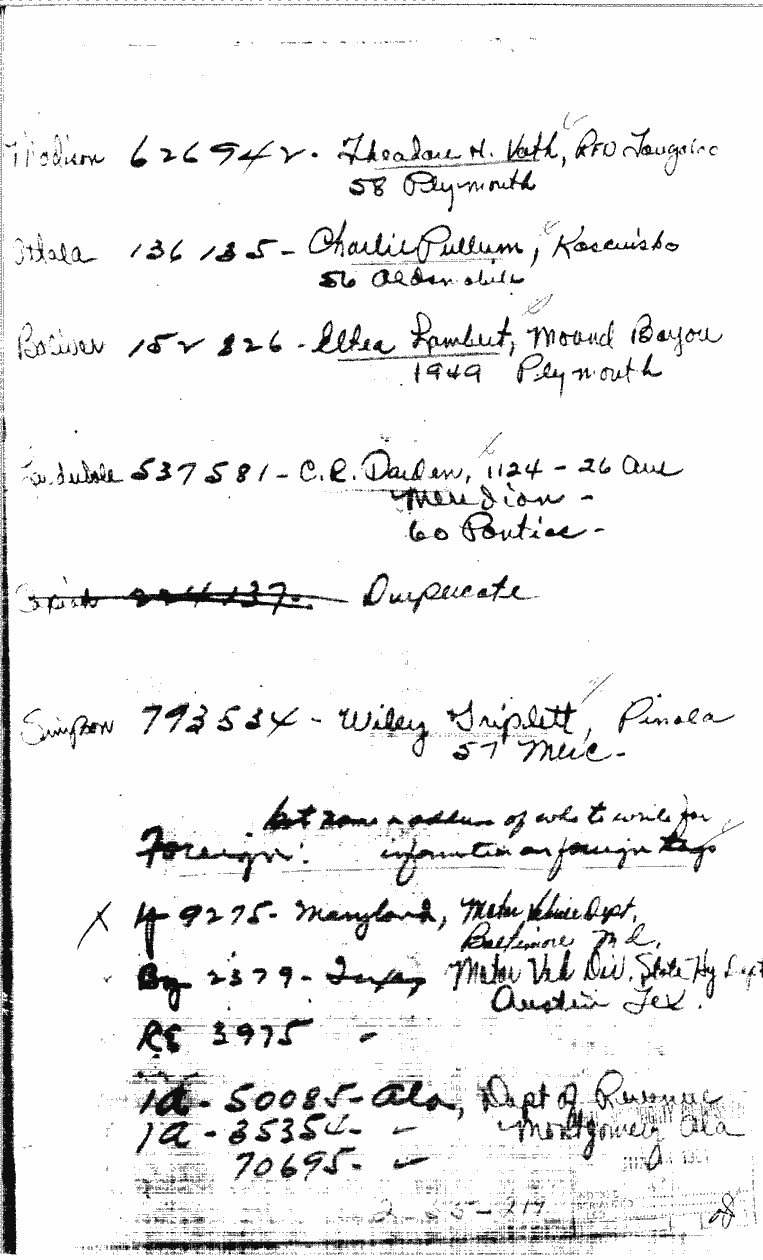 Madison 626942 - Theadore H. Vath, RFD Tougaloo
58 Plymouth
Attala 136 135 - Charlie Pullum, Kosciusko
56 Oldsmobile
Boliver 152 826 - Lambert, Mound Bayou
1949 Plymouth
Lauderdale 537581 - C.R. Darden, 1124 - 26 Ave
Meridian -
60 Pontiac -
Copiah 224137 - Duplicate
Simpson 793534 - Wiley Triplett, Pinola
57 Merc -
Get name & address of who to write for
Foreign: information on foreign tags
X 9275 - Maryland, Motor Vehicle Dept,
Baltimore Md.
2379 - Texas, Motor Veh Div. State Hy Dept
Austin Tex.
RE 3975 "
1A - 50085 - Ala, Dept of Revenue
1A - 35354 - " Montgomery Ala
70695 - "